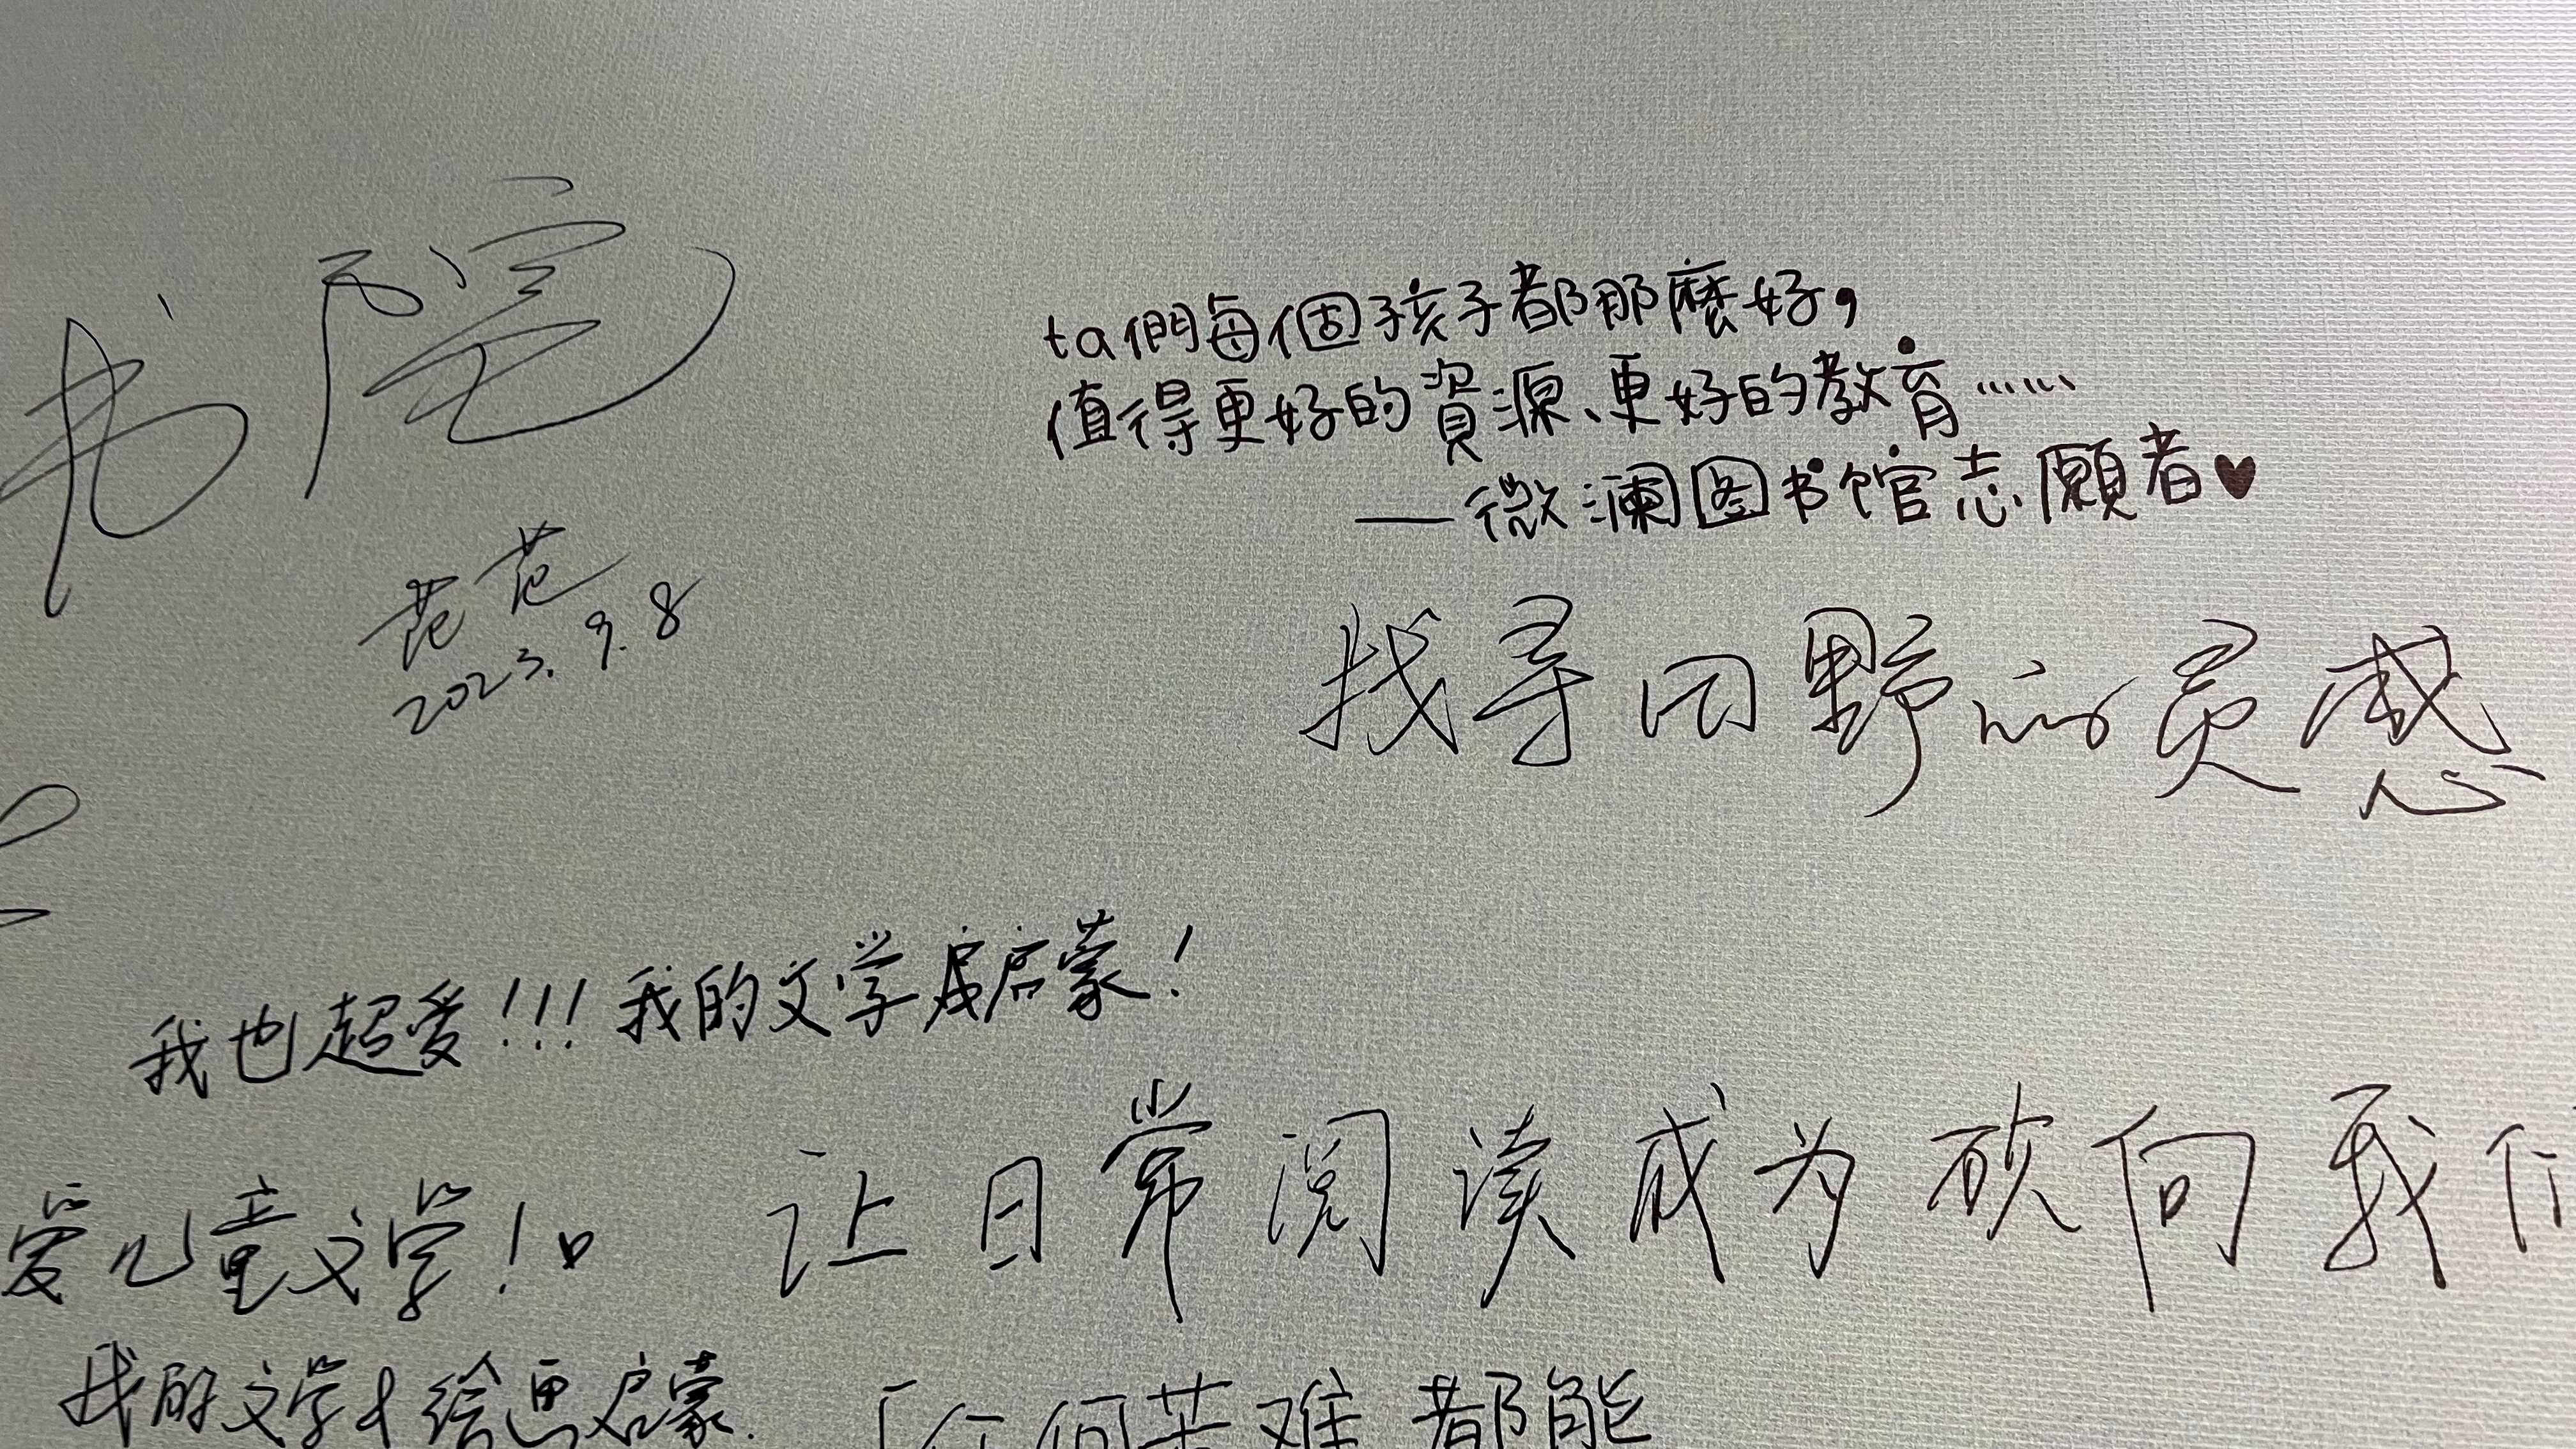 书院
范范
2023.9.8
ta們每個孩子都那麼好，
值得更好的資源、更好的教育……
——微澜图书馆志願者♥
找寻回野的灵感
我也超爱!!!我的文学启蒙!
爱儿童文学!
让日常阅读成为砍向我们
我的文学&绘画启蒙.
「任何苦难都能